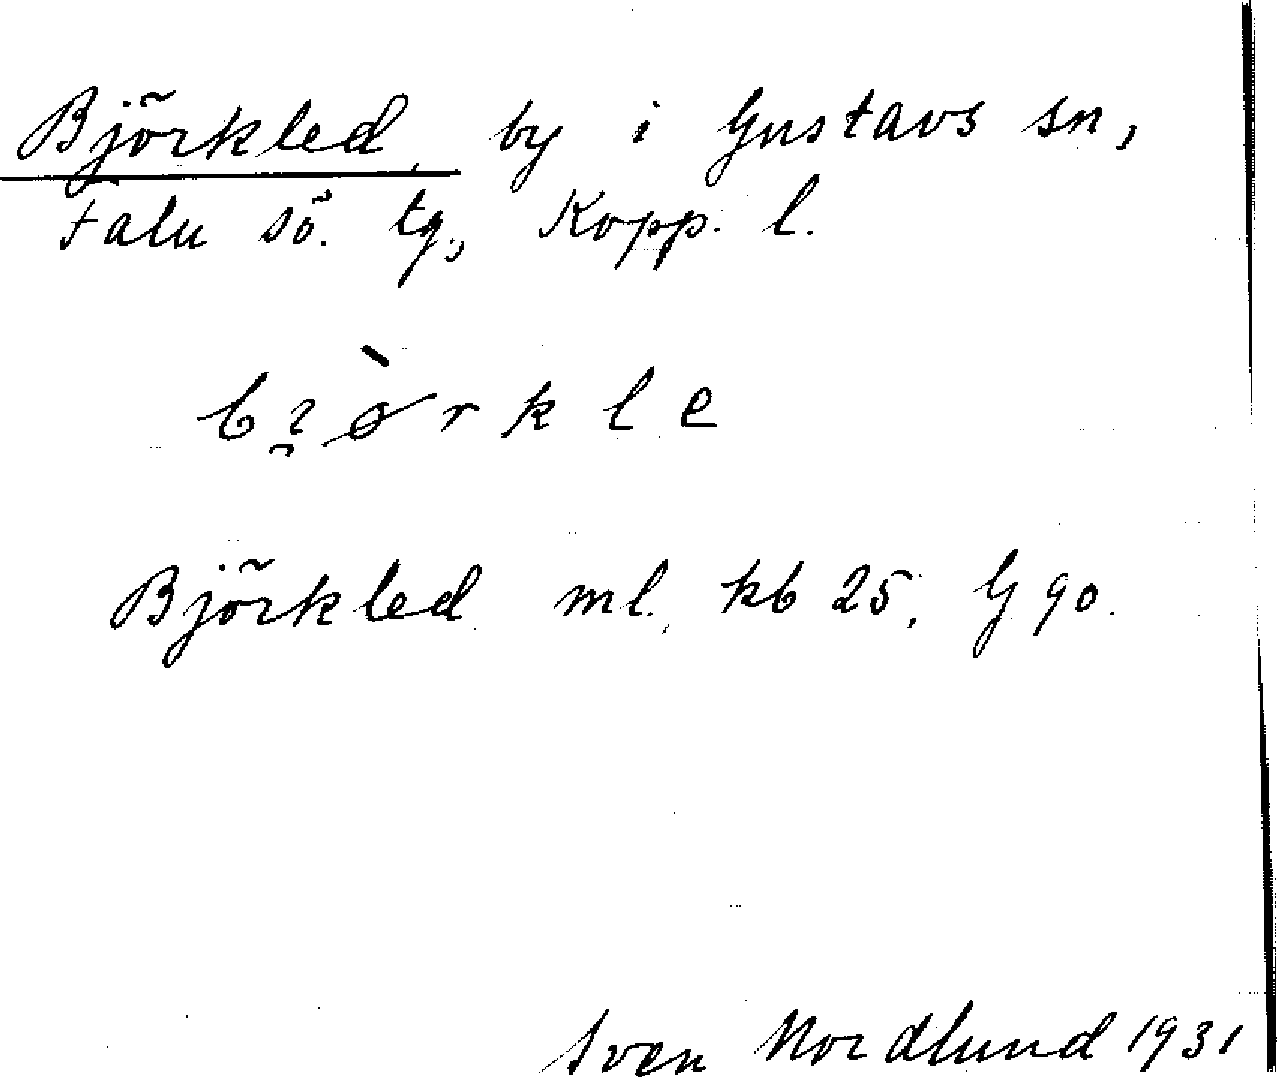 Björkled, by i Gustavs sn,
Falu sö. tg., Kopp. l.
Björkled ml. kb 25, G 90.
Sven Nordlund 1931